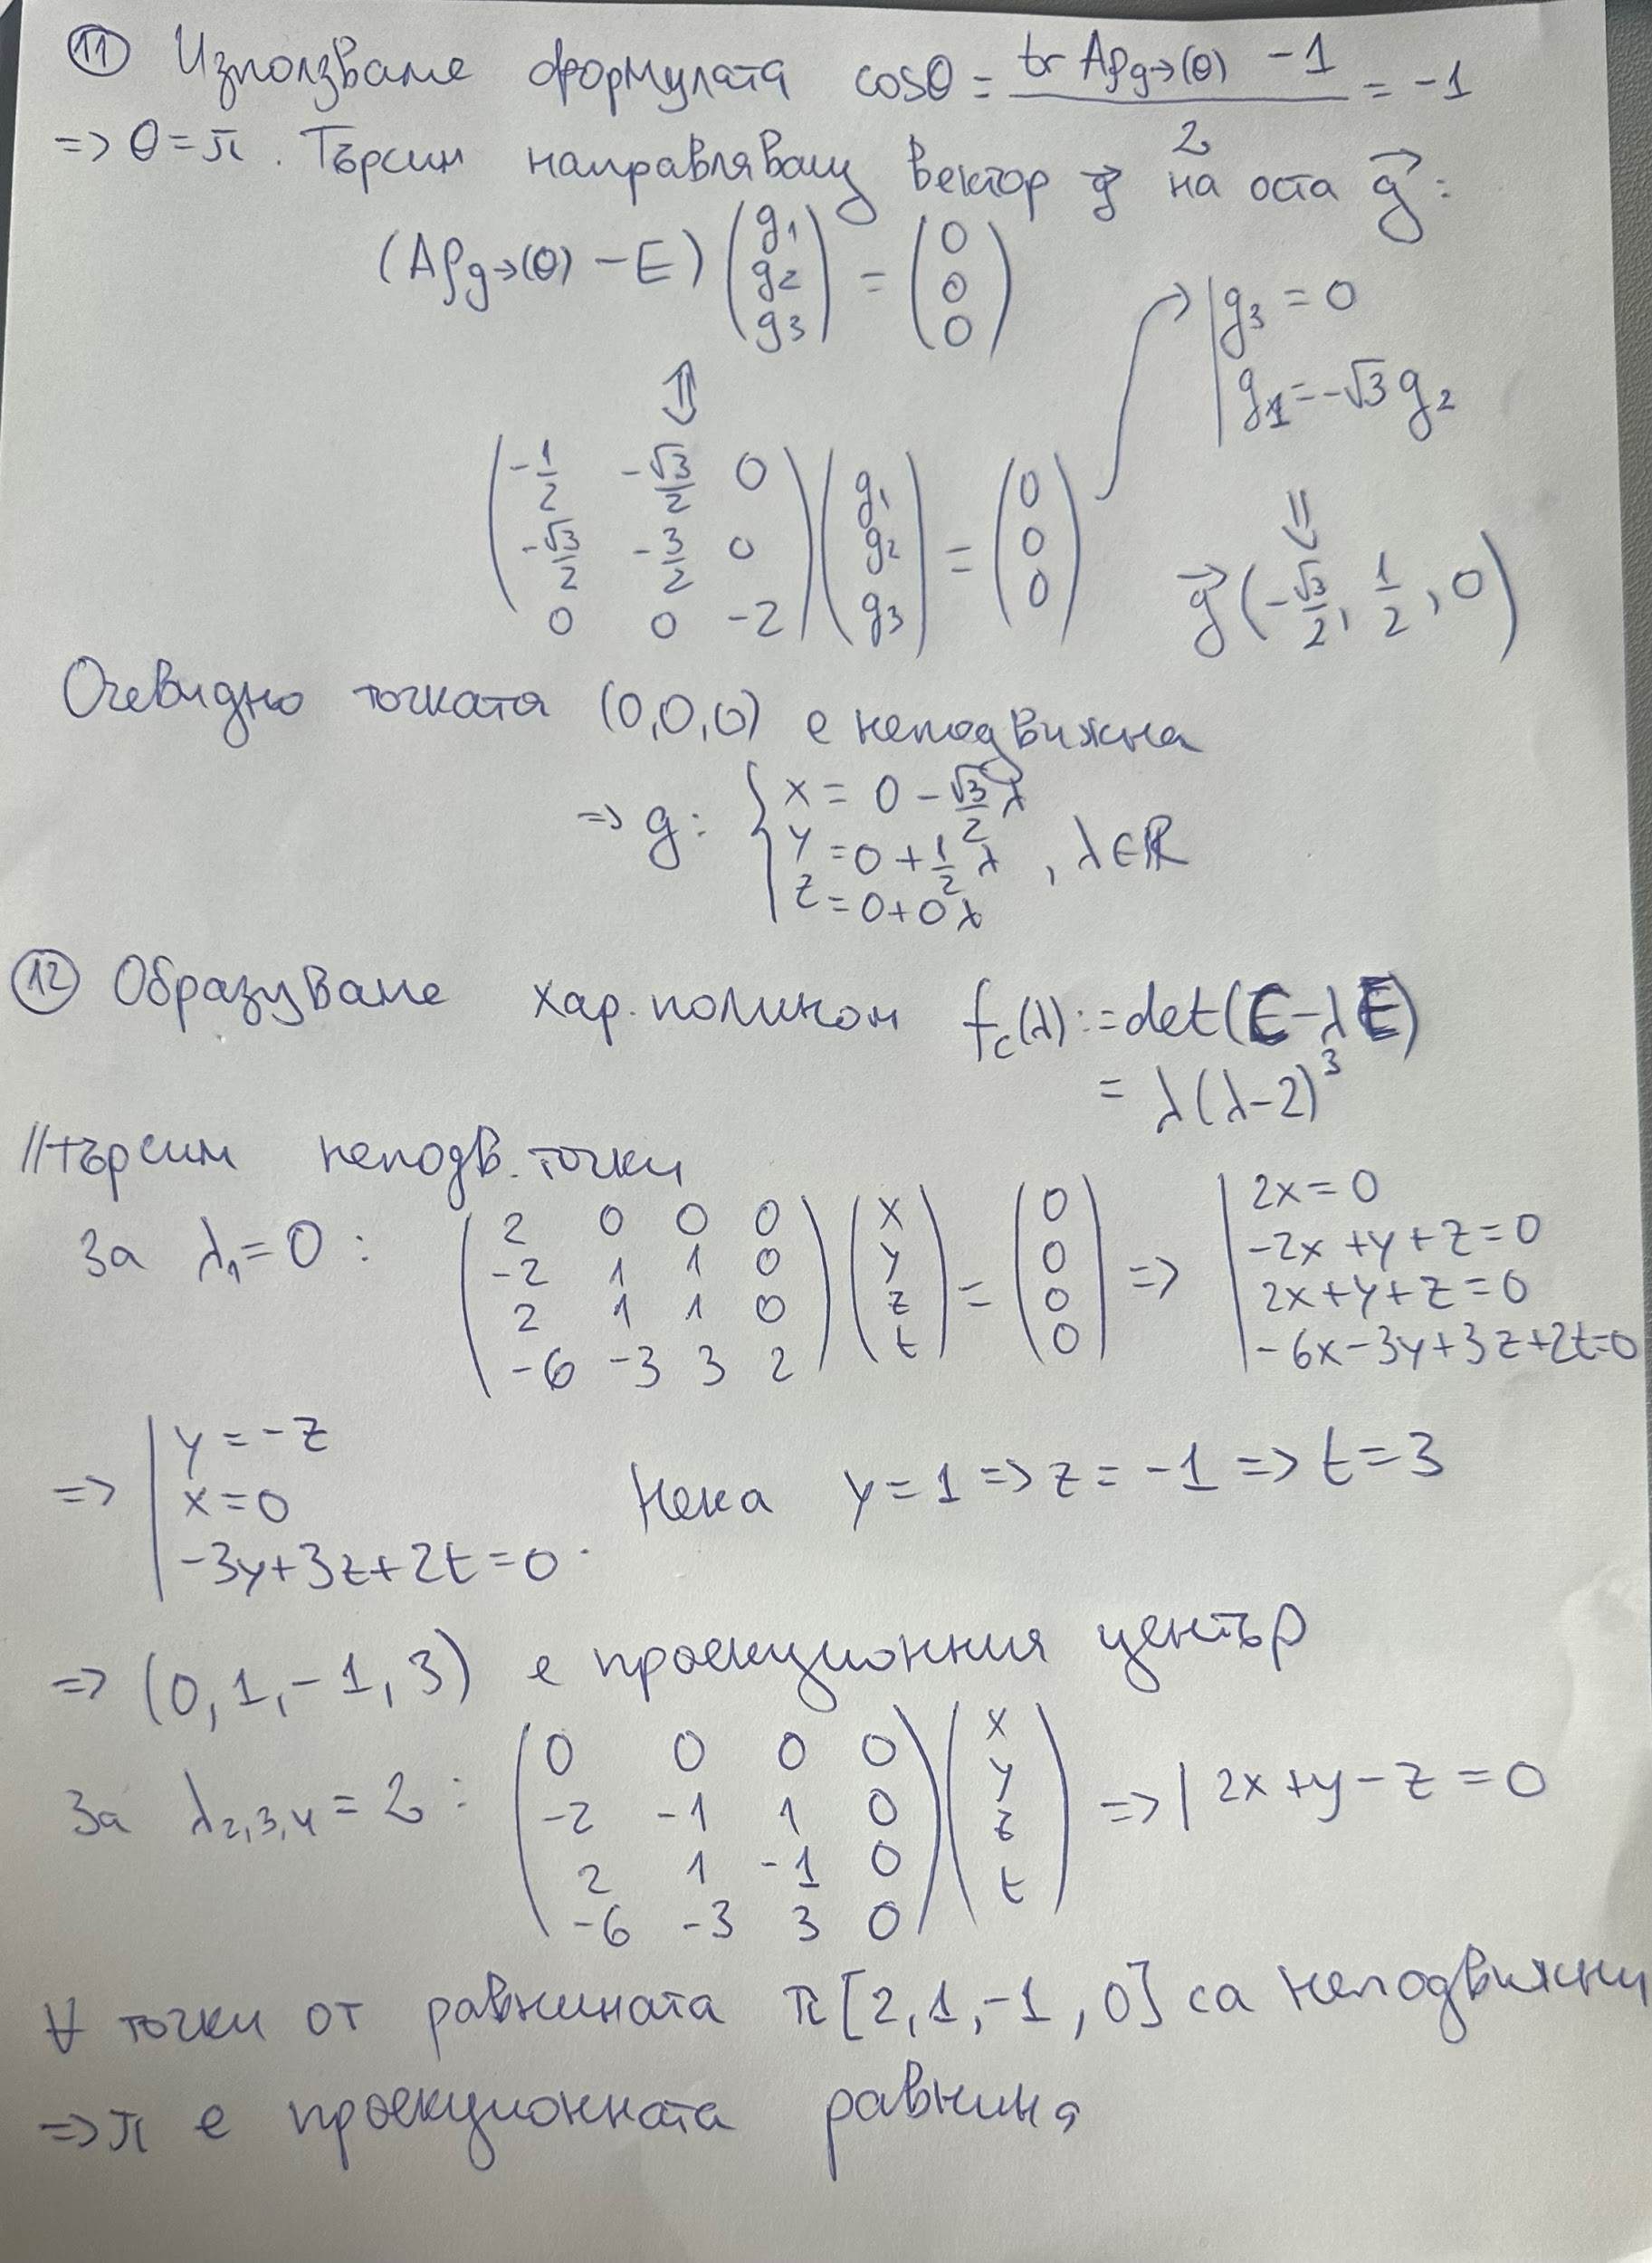 ⑪ Използваме формулата cosθ = (tr Aρg→(θ) - 1)/2 = -1
=> θ = π. Търсим направляващ вектор g→ на оста g→:
(Aρg→(θ) - E) (g1 g2 g3) = (0 0 0)
⇕
(-1/2 -√3/2 0
-√3/2 -3/2 0
0 0 -2) (g1 g2 g3) = (0 0 0)
→ | g3 = 0
| g1 = -√3 g2
⇓
g→(-√3/2, 1/2, 0)
Очевидно точката (0,0,0) е неподвижна
=> g: { x = 0 - √3/2 λ
y = 0 + 1/2 λ , λ∈ℝ
z = 0 + 0λ
⑫ Образуваме хар. полином fc(λ) := det(C - λE)
= λ(λ-2)³
//търсим неподв. точки
За λ1 = 0 :
(2 0 0 0
-2 1 1 0
2 1 1 0
-6 -3 3 2) (x y z t) = (0 0 0 0) =>
| 2x = 0
-2x + y + z = 0
2x + y + z = 0
-6x - 3y + 3z + 2t = 0
=> | y = -z
x = 0
-3y + 3z + 2t = 0 .
Нека y = 1 => z = -1 => t = 3
=> (0, 1, -1, 3) е проекционния център
За λ2,3,4 = 2 :
(0 0 0 0
-2 -1 1 0
2 1 -1 0
-6 -3 3 0) (x y z t) => | 2x + y - z = 0
∀ точки от равнината π[2, 1, -1, 0] са неподвижни
=> π е проекционната равнина